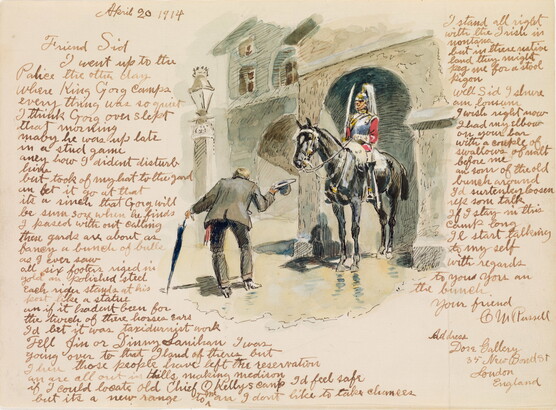 April 20 1914
Friend Sid
I went up to the
Palice the other day
where King Gorg camps
every thing was so quiet
I think Gorg over slept
that morning
maby he was up late
in a stud game
aney how I dident disturb
him
but took of my hat to the gard
an let it go at that
its a sinch that Gorg will
be some sore when he finds
I passed with out calling
these gards are about as
fancy a bunch of bulls
as I ever saw
all six footers riged in
gold an polished steel
Each rider stands at his
post like a statue
an if it hadent been for
the twich of there horses ears
I'd bet it was taxidurmist work
Tell Jim or Dinny Lanihan I was
going over to that Iland of theirs but
I hear those people have left the reservation
an are all out in hills making medison
if I could locate old Chief O Killys camp I'd feel safe
but its a new range to me an I dont like to take chances
I stand all right
with the Irish in
montana
but in there native
land they might
peg me for a stool
pigon
Well Sid I shure
am lonsum
I wish right now
I had my elbow
on your bar
with a couple of
swallows of malt
before me
an som of the old
bunch around
I'd surtenly loosen
up som talk
If I stay in this
camp long
I'l start talking
to my self
with regards
to you an
the bunch
Your friend
C M Russell
Address
Dore Gallery
35 New Bond St
London
England